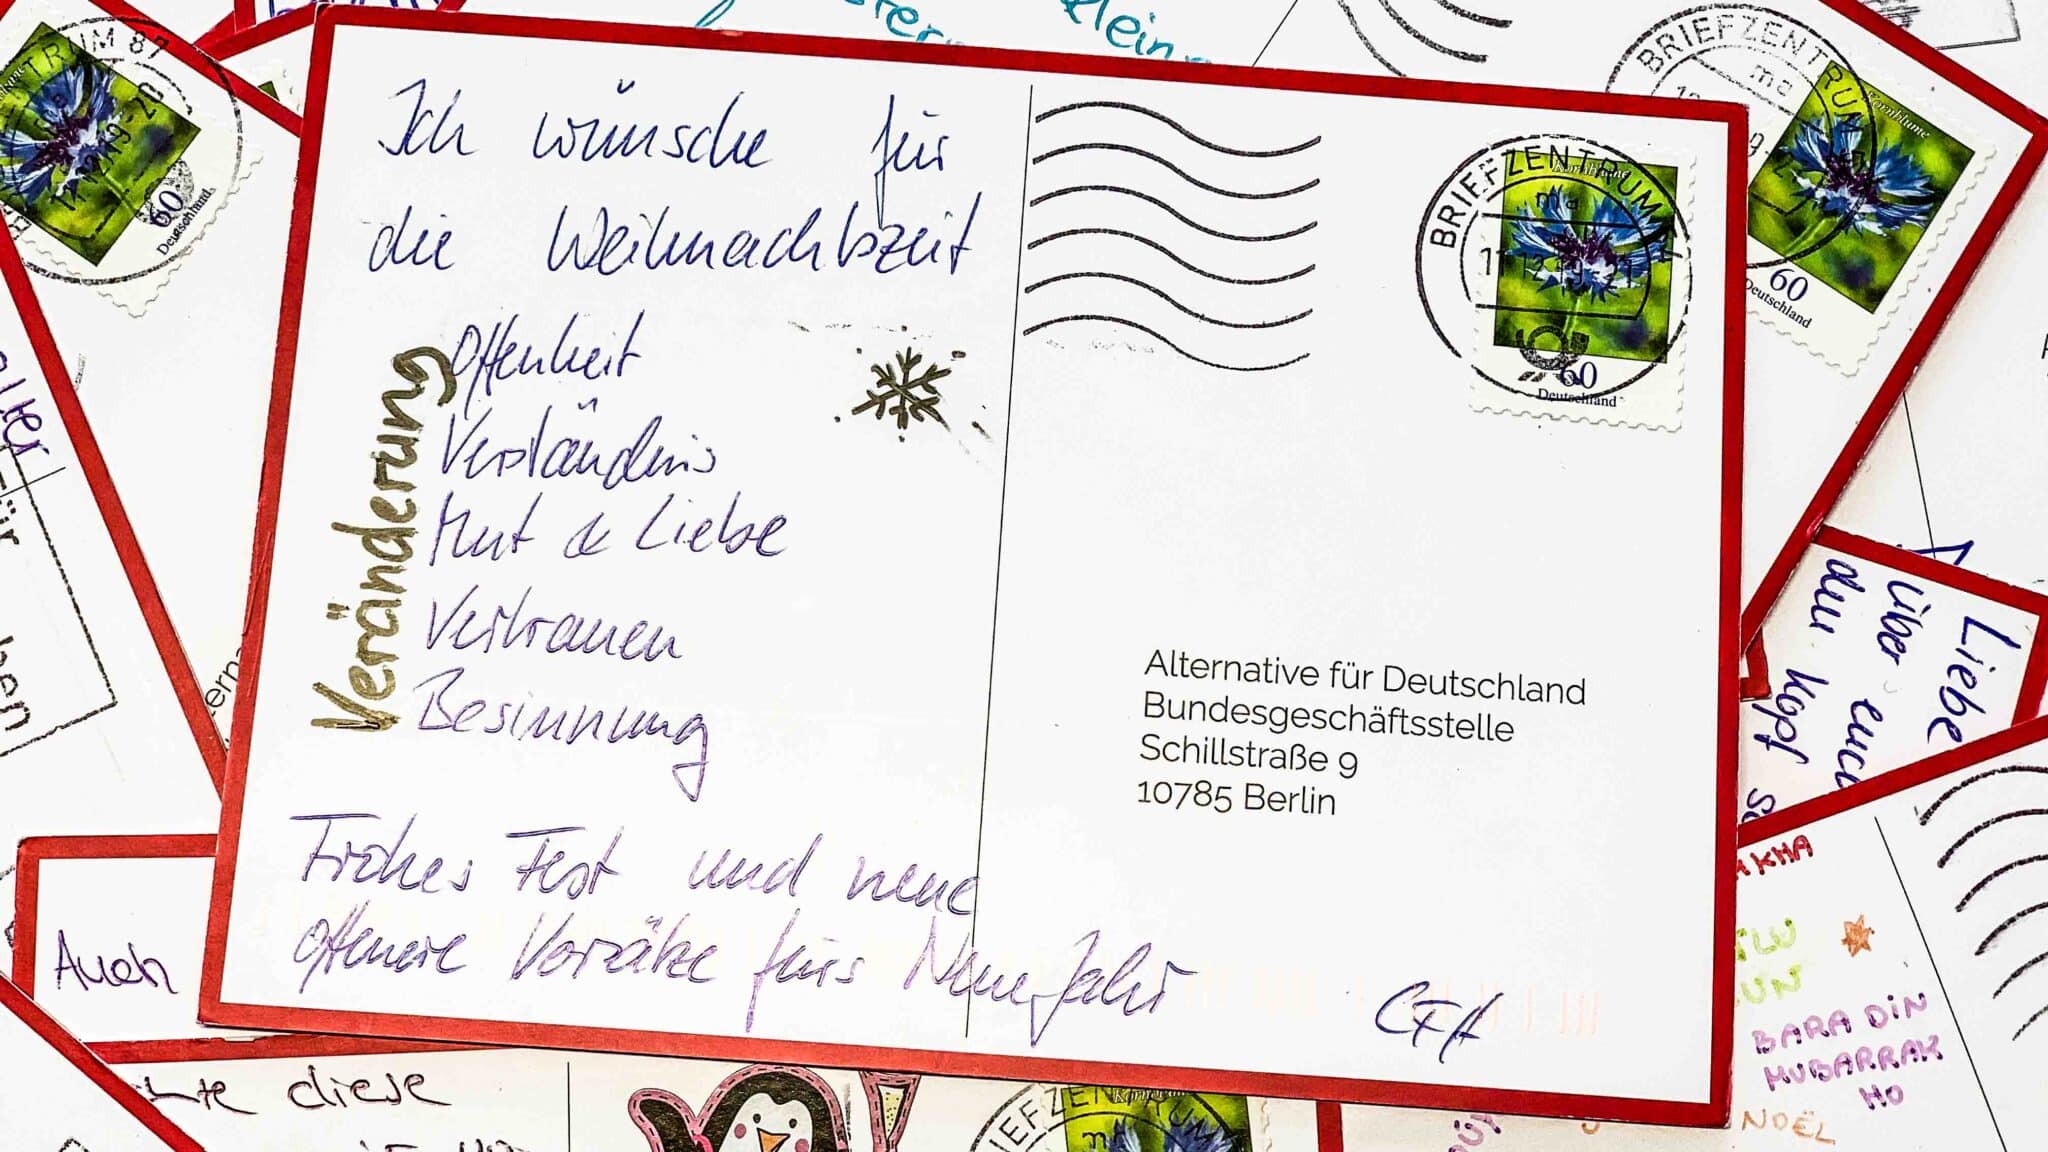 Ich wünsche für
die Weihnachtszeit
Offenheit
Verständnis
Mut & Liebe
Vertrauen
Besinnung
Veränderung
Frohes Fest und neue
offenere Vorsätze fürs Neue Jahr
CFH
BRIEFZENTRUM
ma
Kornblume
60
Deutschland
Alternative für Deutschland
Bundesgeschäftsstelle
Schillstraße 9
10785 Berlin
RUM 87
60
Deutschland
BRIEFZENTRUM
ma
Kornblume
60
Deutschland
Liebe
über euch
den Kopf
Auch
diese
BARA DIN
MUBARRAK
HO
NOËL